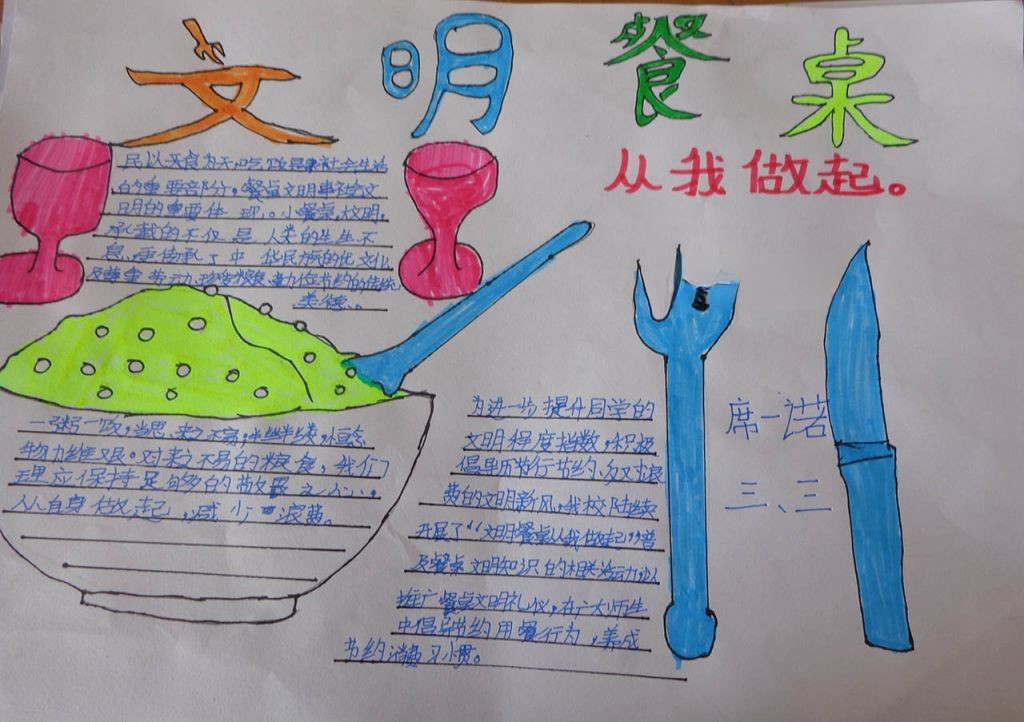 文明餐桌
从我做起。
民以天食为天,吃饭是社会生活
的重要部分。餐桌文明事社会文
明的重要体现。小餐桌,大文明,
承载的不仅是人类的生生不
息,更传承了中华民族的优文化
及尊重劳动,珍惜粮食,勤俭节约的传统
美德。
一粥一饭,当思来之不易;半丝半缕,恒念
物力维艰。对来之不易的粮食,我们
理应保持足够多的敬畏之心,
从自身做起,减少浪费。
为进一步提升同学的
文明程度指数,积极
倡导厉行节约、反对浪
费的文明新风,我校陆续
开展了“文明餐桌从我做起”普
及餐桌文明知识的相关活动,以
推广餐桌文明礼仪,在广大师生
中倡导节约用餐行为,养成
节约消费习惯。
席一诺
三、三